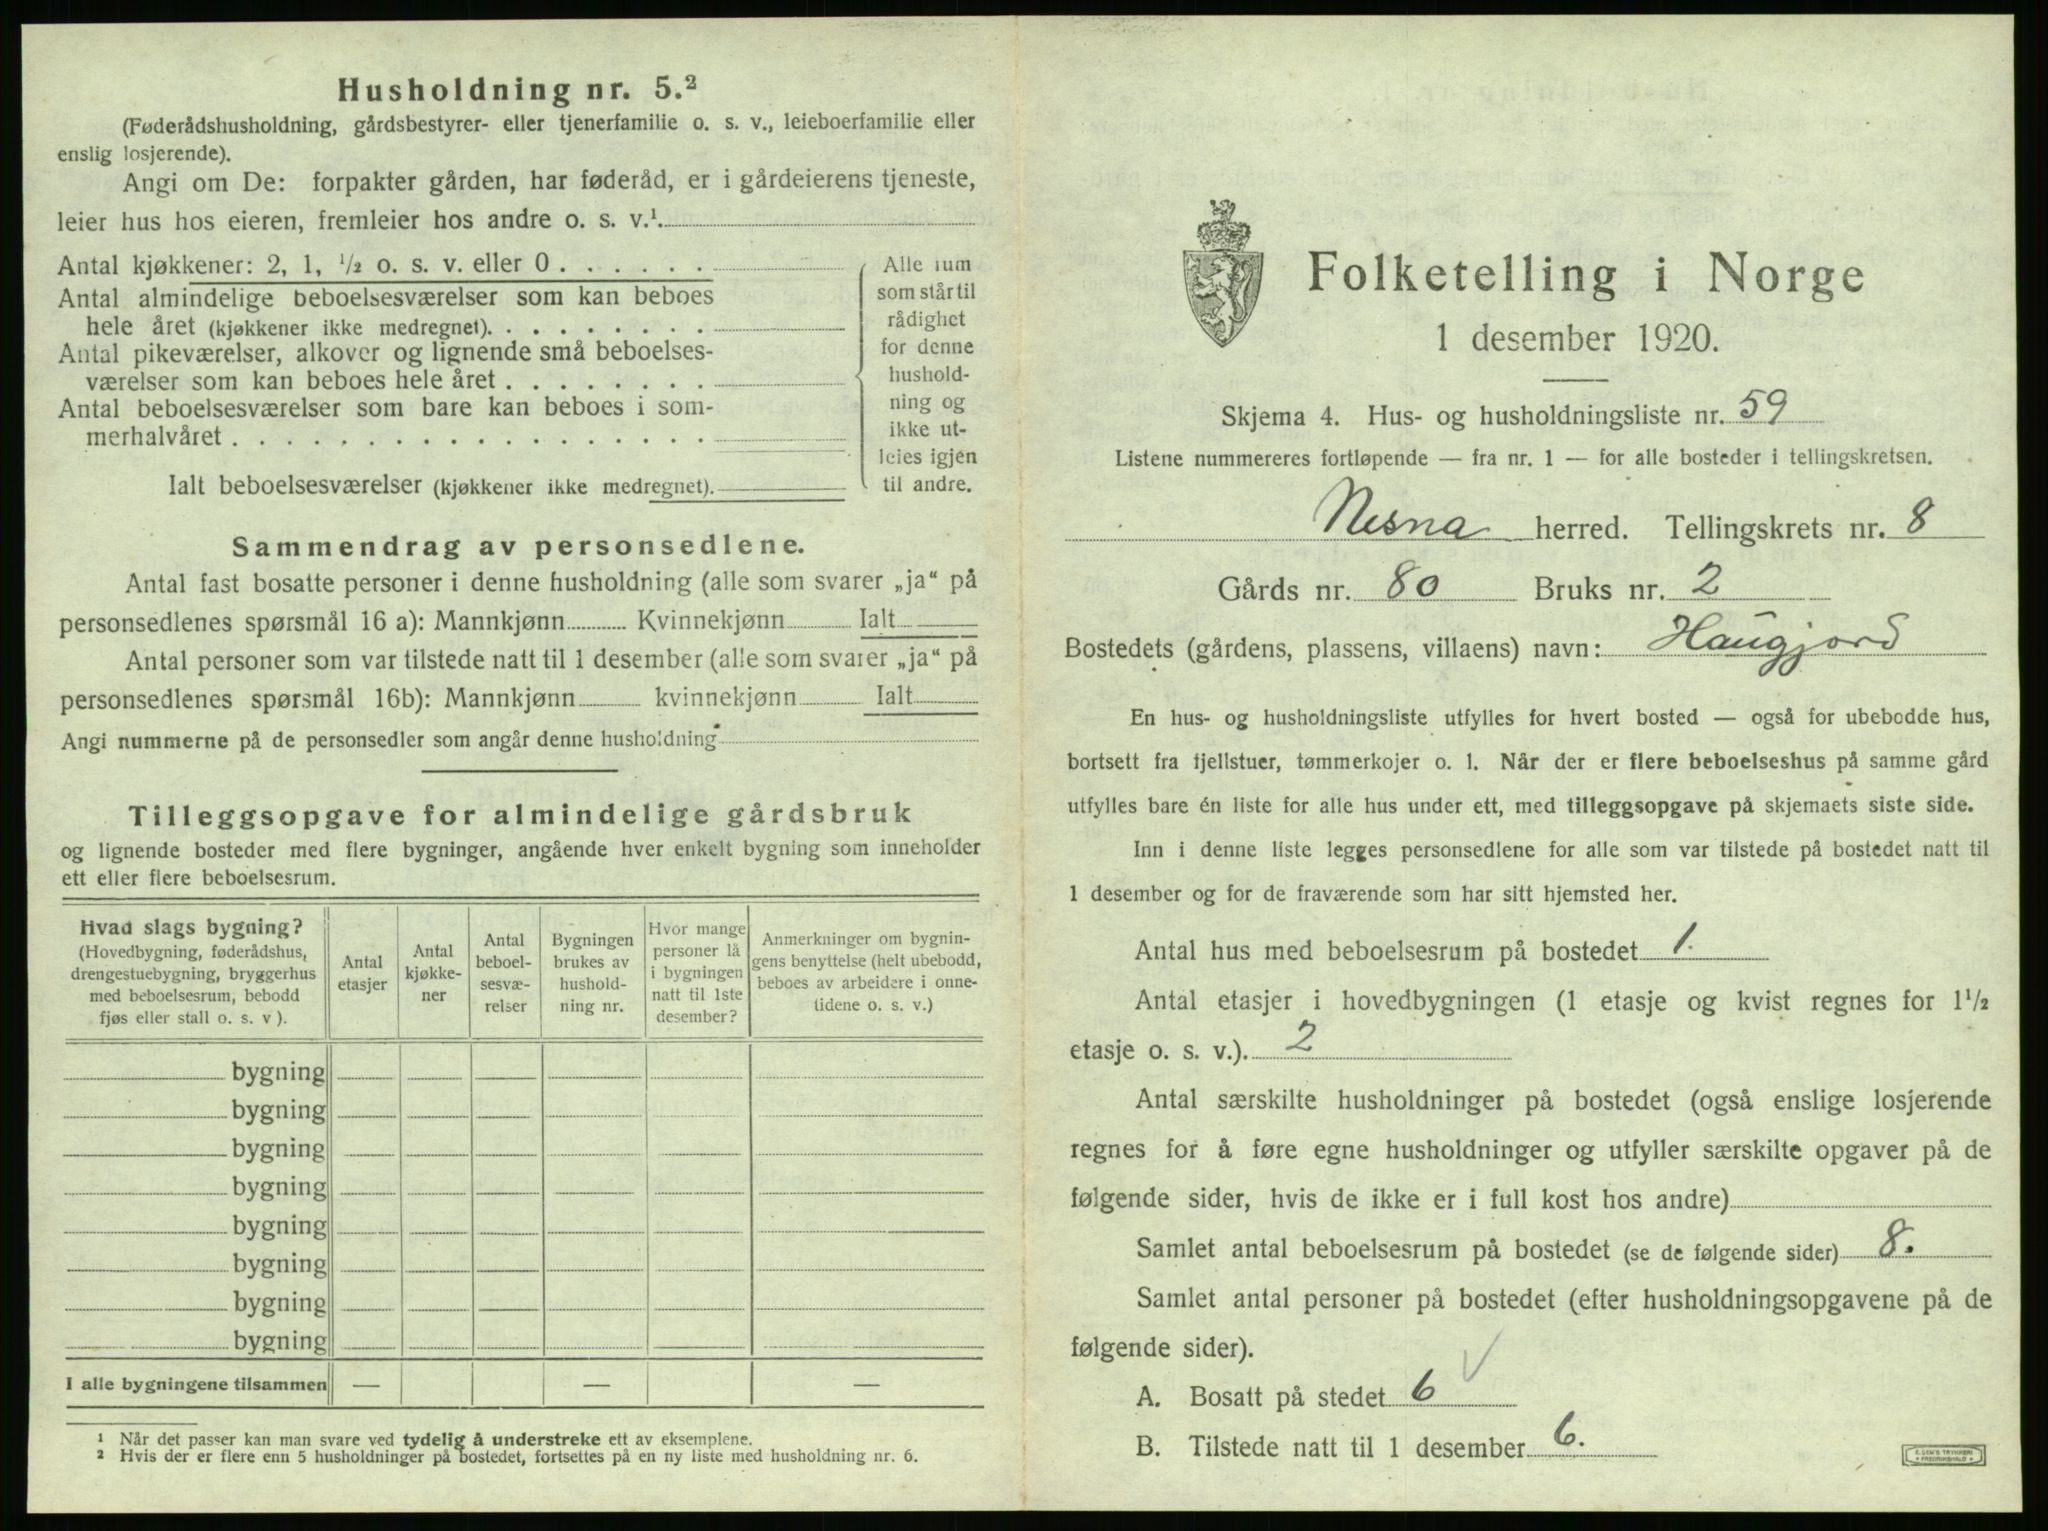 Husholdning nr. 5.²
(Føderådshusholdning, gårdsbestyrer- eller tjenerfamilie o. s. v., leieboerfamilie eller
enslig losjerende).
Angi om De: forpakter gården, har føderåd, er i gårdeierens tjeneste,
leier hus hos eieren, fremleier hos andre o. s. v.¹
Antal kjøkkener: 2, 1, ½ o. s. v. eller 0 . . . . . .
Antal almindelige beboelsesværelser som kan beboes
hele året (kjøkkener ikke medregnet). . . . . . . . .
Antal pikeværelser, alkover og lignende små beboelses-
værelser som kan beboes hele året . . . . . . . .
Antal beboelsesværelser som bare kan beboes i som-
merhalvåret . . . . . . . . . . . . . . . . . .
Ialt beboelsesværelser (kjøkkener ikke medregnet).
Alle rum
som står til
rådighet
for denne
hushold-
ning og
ikke ut-
leies igjen
til andre.
Sammendrag av personsedlene.
Antal fast bosatte personer i denne husholdning (alle som svarer „ja“ på
personsedlenes spørsmål 16 a): Mannkjønn Kvinnekjønn Ialt
Antal personer som var tilstede natt til 1 desember (alle som svarer „ja“ på
personsedlenes spørsmål 16b): Mannkjønn kvinnekjønn Ialt
Angi nummerne på de personsedler som angår denne husholdning
Tilleggsopgave for almindelige gårdsbruk
og lignende bosteder med flere bygninger, angående hver enkelt bygning som inneholder
ett eller flere beboelsesrum.
Hvad slags bygning?
(Hovedbygning, føderådshus,
drengestuebygning, bryggerhus
med beboelsesrum, bebodd
fjøs eller stall o. s. v ).
Antal
etasjer
Antal
kjøkke-
ner
Antal
beboel-
sesvæ-
relser
Bygningen
brukes av
hushold-
ning nr.
Hvor mange
personer lå
i bygningen
natt til 1ste
desember?
Anmerkninger om bygnin-
gens benyttelse (helt ubebodd,
beboes av arbeidere i onne-
tidene o. s. v.)
bygning
bygning
bygning
bygning
bygning
bygning
bygning
bygning
I alle bygningene tilsammen — — —
¹ Når det passer kan man svare ved tydelig å understreke ett av eksemplene.
² Hvis der er flere enn 5 husholdninger på bostedet, fortsettes på en ny liste med husholdning nr. 6.
Folketelling i Norge
1 desember 1920.
Skjema 4. Hus- og husholdningsliste nr. 59
Listene nummereres fortløpende — fra nr. 1 — for alle bosteder i tellingskretsen.
Nesna herred. Tellingskrets nr. 8
Gårds nr. 80 Bruks nr. 2
Bostedets (gårdens, plassens, villaens) navn: Haugjord
En hus- og husholdningsliste utfylles for hvert bosted — også for ubebodde hus,
bortsett fra fjellstuer, tømmerkojer o. l. Når der er flere beboelseshus på samme gård
utfylles bare én liste for alle hus under ett, med tilleggsopgave på skjemaets siste side.
Inn i denne liste legges personsedlene for alle som var tilstede på bostedet natt til
1 desember og for de fraværende som har sitt hjemsted her.
Antal hus med beboelsesrum på bostedet 1.
Antal etasjer i hovedbygningen (1 etasje og kvist regnes for 1½
etasje o. s. v.). 2
Antal særskilte husholdninger på bostedet (også enslige losjerende
regnes for å føre egne husholdninger og utfyller særskilte opgaver på de
følgende sider, hvis de ikke er i full kost hos andre)
Samlet antal beboelsesrum på bostedet (se de følgende sider) 8.
Samlet antal personer på bostedet (efter husholdningsopgavene på de
følgende sider).
A. Bosatt på stedet 6
B. Tilstede natt til 1 desember 6.